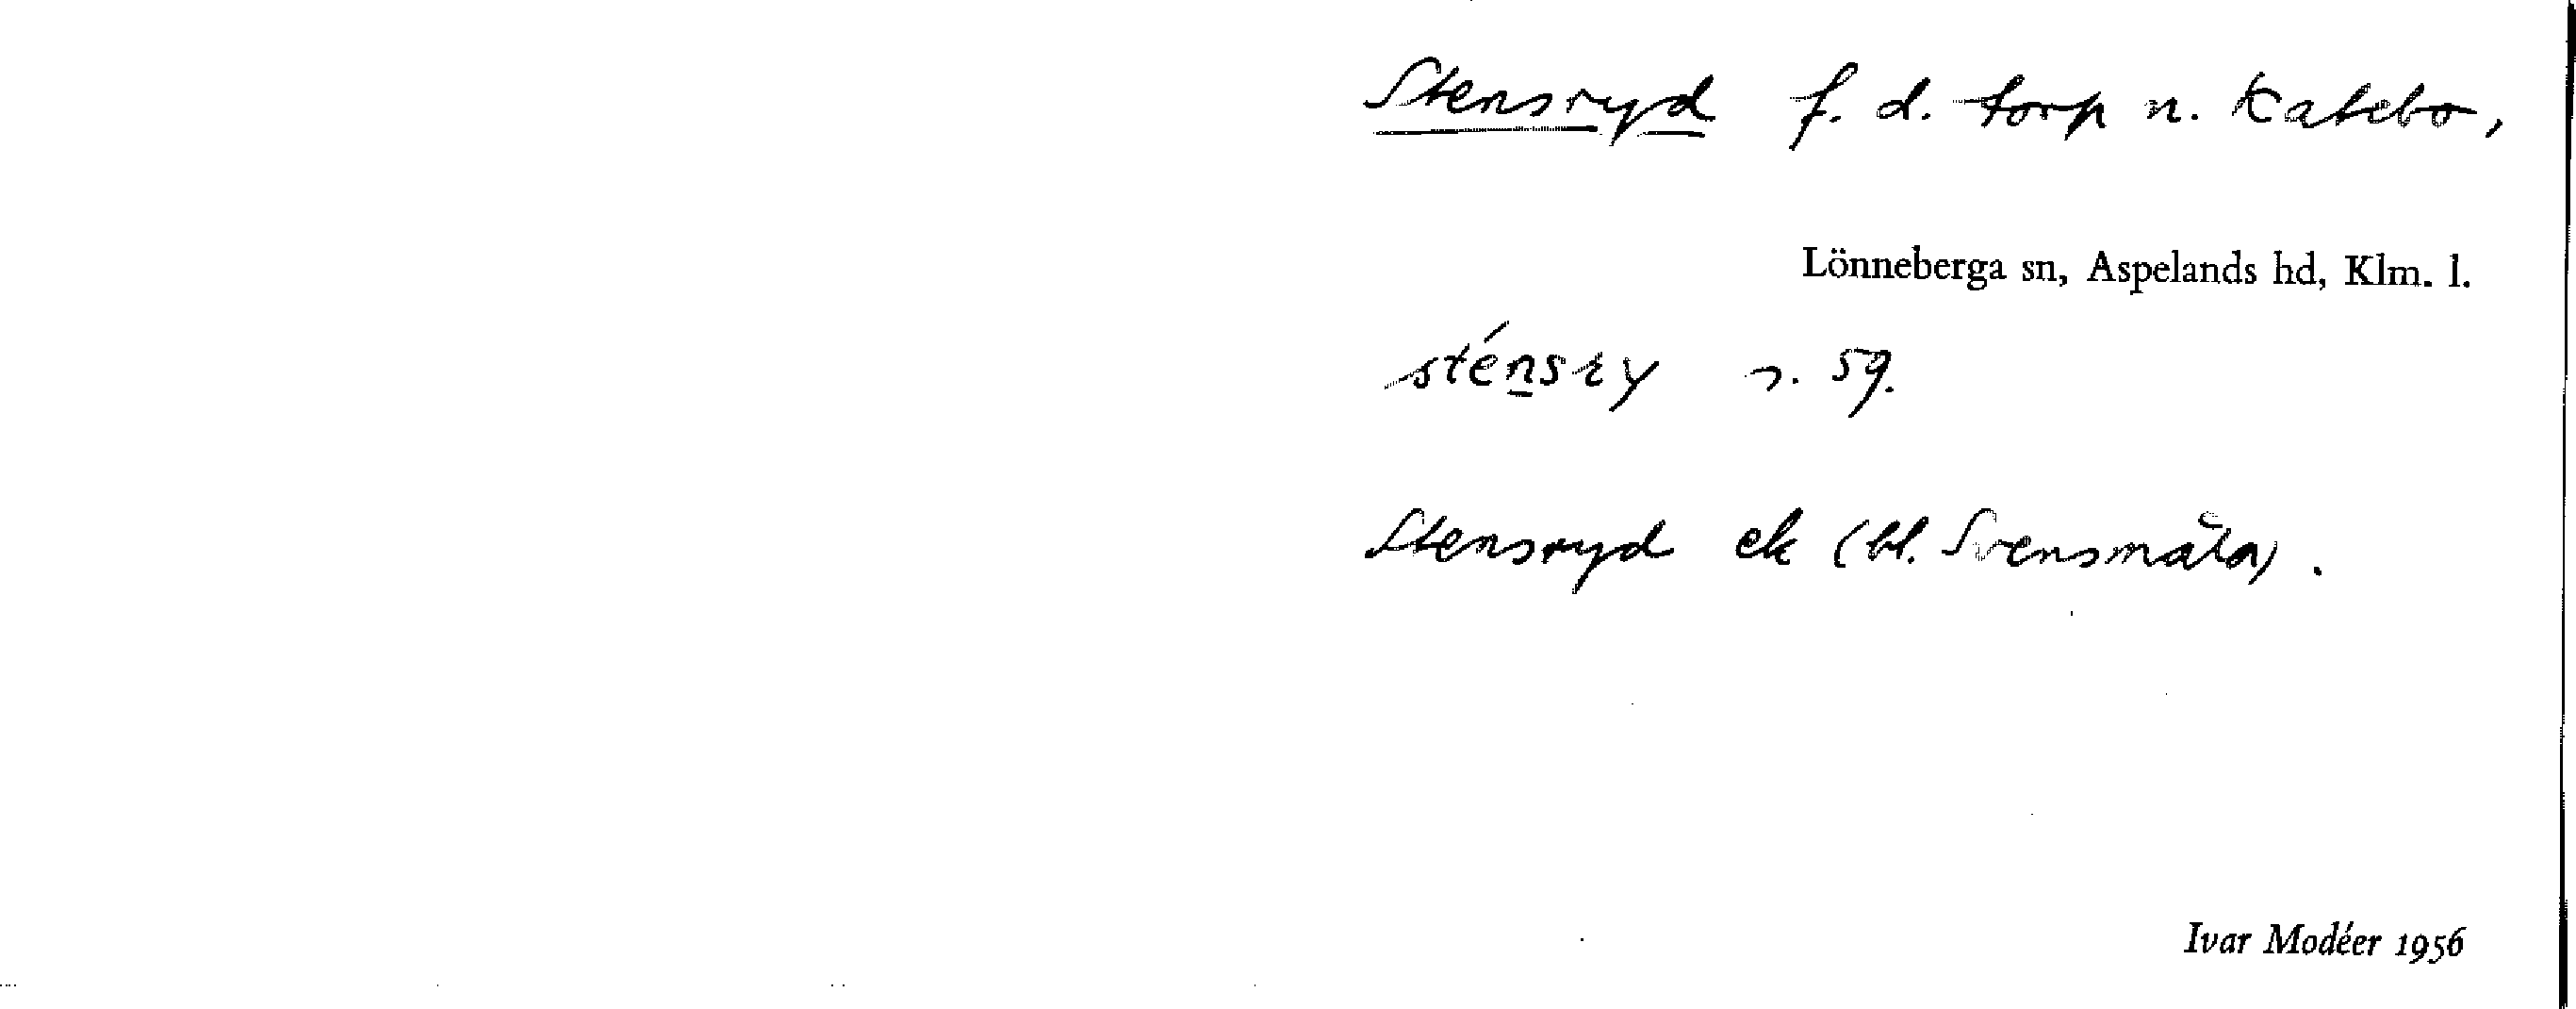 Stensryd f. d. torp n. Katebo,
Lönneberga sn, Aspelands hd, Klm. l.
sténsry n. sg.
Stensryd ek (bl. Svensmåla).
Ivar Modéer 1956